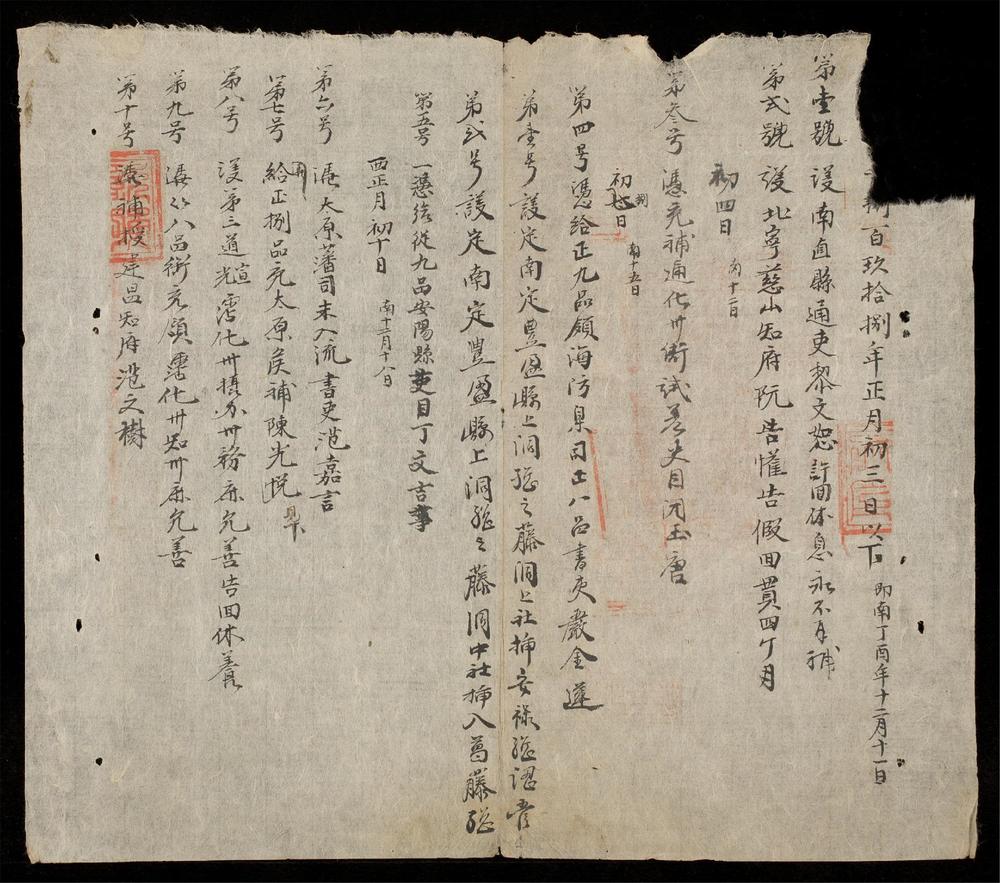 捌百玖拾捌年正月初三日以下 即南丁酉年十二月十一日
第壹號 護南直縣通吏黎文恕許回休息永不再補
第貳號 護北寧慈山知府阮告懽告假回貫四个月
初四日 南十二日
第叁号 憑充補通化州衙試差吏目阮玉唐
初捌日 南十五日
第四号 憑給正九品領海防臬司正八品書吏嚴金蓮
第壹号 護定南定豊盈縣上洞総之藤洞上社插安禄総認嘗
第弍号 護定南定豊盈縣上洞総之藤洞中社插入葛藤総
第五号 一憑給從九品安陽縣吏目丁文吉
西正月初十日 南十二月十八日
第六号 憑太原藩司未入流書吏范嘉言
第七号 給正捌品充太原候補陳光悦
第八号 護第三道光霑化州攝办州務麻允善告回休養
第九号 憑以八品銜充領霑化州知州麻允善
第十号 憑補授建昌知府范文樹